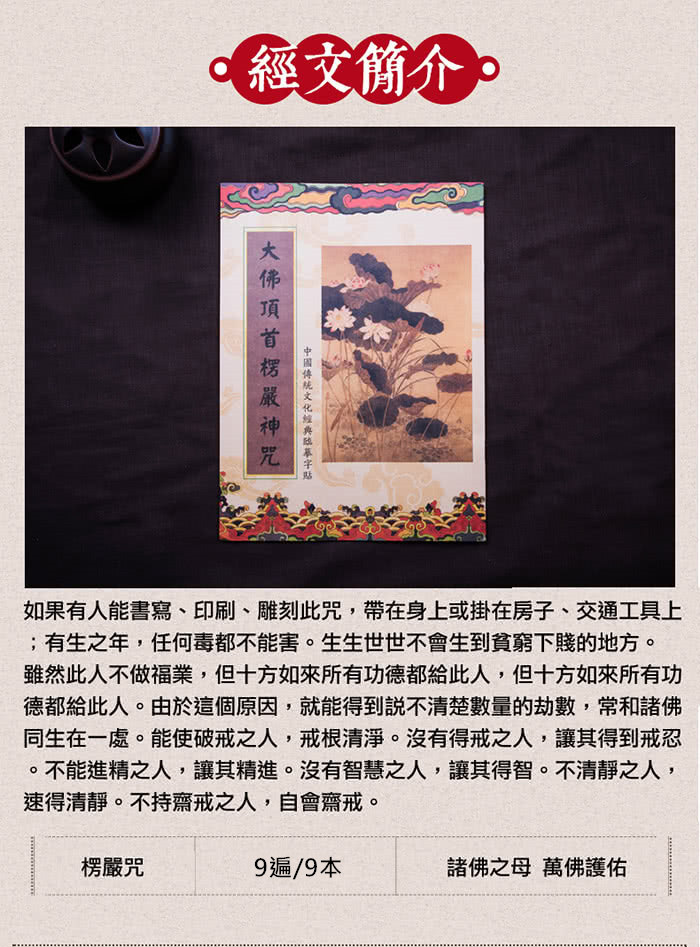 經文簡介
大佛頂首楞嚴神咒
中國傳統文化經典臨摹字貼
如果有人能書寫、印刷、雕刻此咒，帶在身上或掛在房子、交通工具上
；有生之年，任何毒都不能害。生生世世不會生到貧窮下賤的地方。
雖然此人不做福業，但十方如來所有功德都給此人，但十方如來所有功
德都給此人。由於這個原因，就能得到説不清楚數量的劫數，常和諸佛
同生在一處。能使破戒之人，戒根清淨。沒有得戒之人，讓其得到戒忍
。不能進精之人，讓其精進。沒有智慧之人，讓其得智。不清靜之人，
速得清靜。不持齋戒之人，自會齋戒。
楞嚴咒
9遍/9本
諸佛之母 萬佛護佑